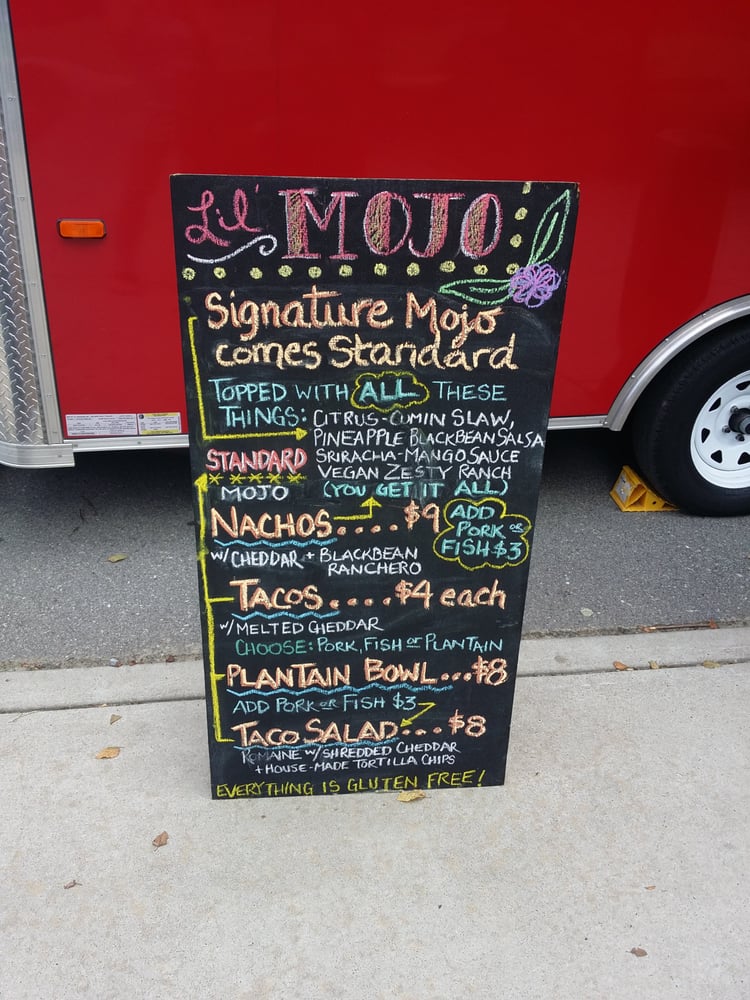 Lil' MOJO
Signature Mojo
comes Standard
TOPPED WITH ALL THESE
THINGS: CITRUS-CUMIN SLAW,
PINEAPPLE BLACKBEAN SALSA
SRIRACHA-MANGO SAUCE
VEGAN ZESTY RANCH
(YOU GET IT ALL)
STANDARD
MOJO
NACHOS....$9
ADD
PORK OR
FISH $3
W/ CHEDDAR + BLACKBEAN
RANCHERO
TACOS....$4 each
W/MELTED CHEDDAR
CHOOSE: PORK, FISH OR PLANTAIN
PLANTAIN BOWL...$8
ADD PORK OR FISH $3
TACO SALAD...$8
ROMAINE W/SHREDDED CHEDDAR
+ HOUSE-MADE TORTILLA CHIPS
EVERYTHING IS GLUTEN FREE!